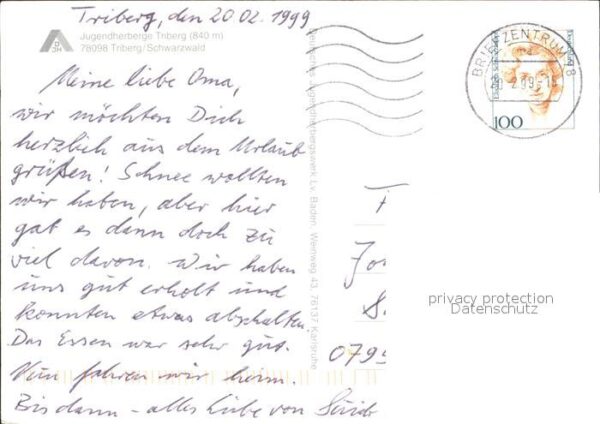 Triberg, den 20 02. 1999
DJH
Jugendherberge Triberg (840 m)
78098 Triberg/Schwarzwald
Meine liebe Oma,
wir möchten Dich
herzlich aus dem Urlaub
grüßen! Schnee wollten
wir haben, aber hier
gat es dann doch zu
viel davon. Wir haben
uns gut erholt und
konnten etwas abschalten.
Das Essen war sehr gut.
Nun fahren wir heim.
Bis dann - alles Liebe von
Jugendherbergswerk Lv. Baden, Weinweg 43, 76137 Karlsruhe
BRIEFZENTRUM 8
100
privacy protection
Datenschutz